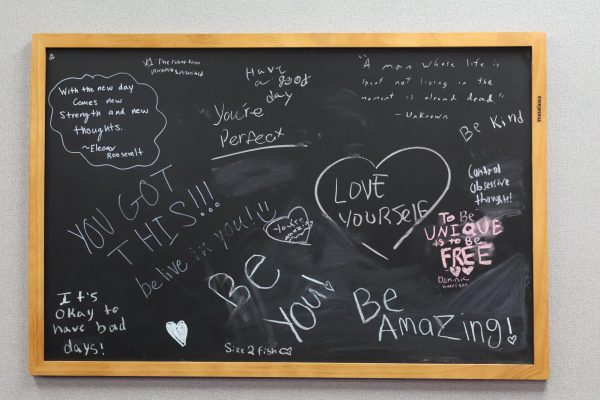 With the new day
Comes new
Strength and new
thoughts.
~Eleanor
Roosevelt
Have
a good
day
You're
Perfect
"A man whose life is
spent not living in the
moment is already dead"
- Unknown
Be Kind
YOU GOT
THIS!!!
belive in you!
You're
LOVE
YOURSELF
Control
Obsessive
thought!
TO Be
UNIQUE
is to be
FREE
Dominic
Be
You!
Be
AmaZing!
It's
Okay to
have bad
days!
Size 2 fish